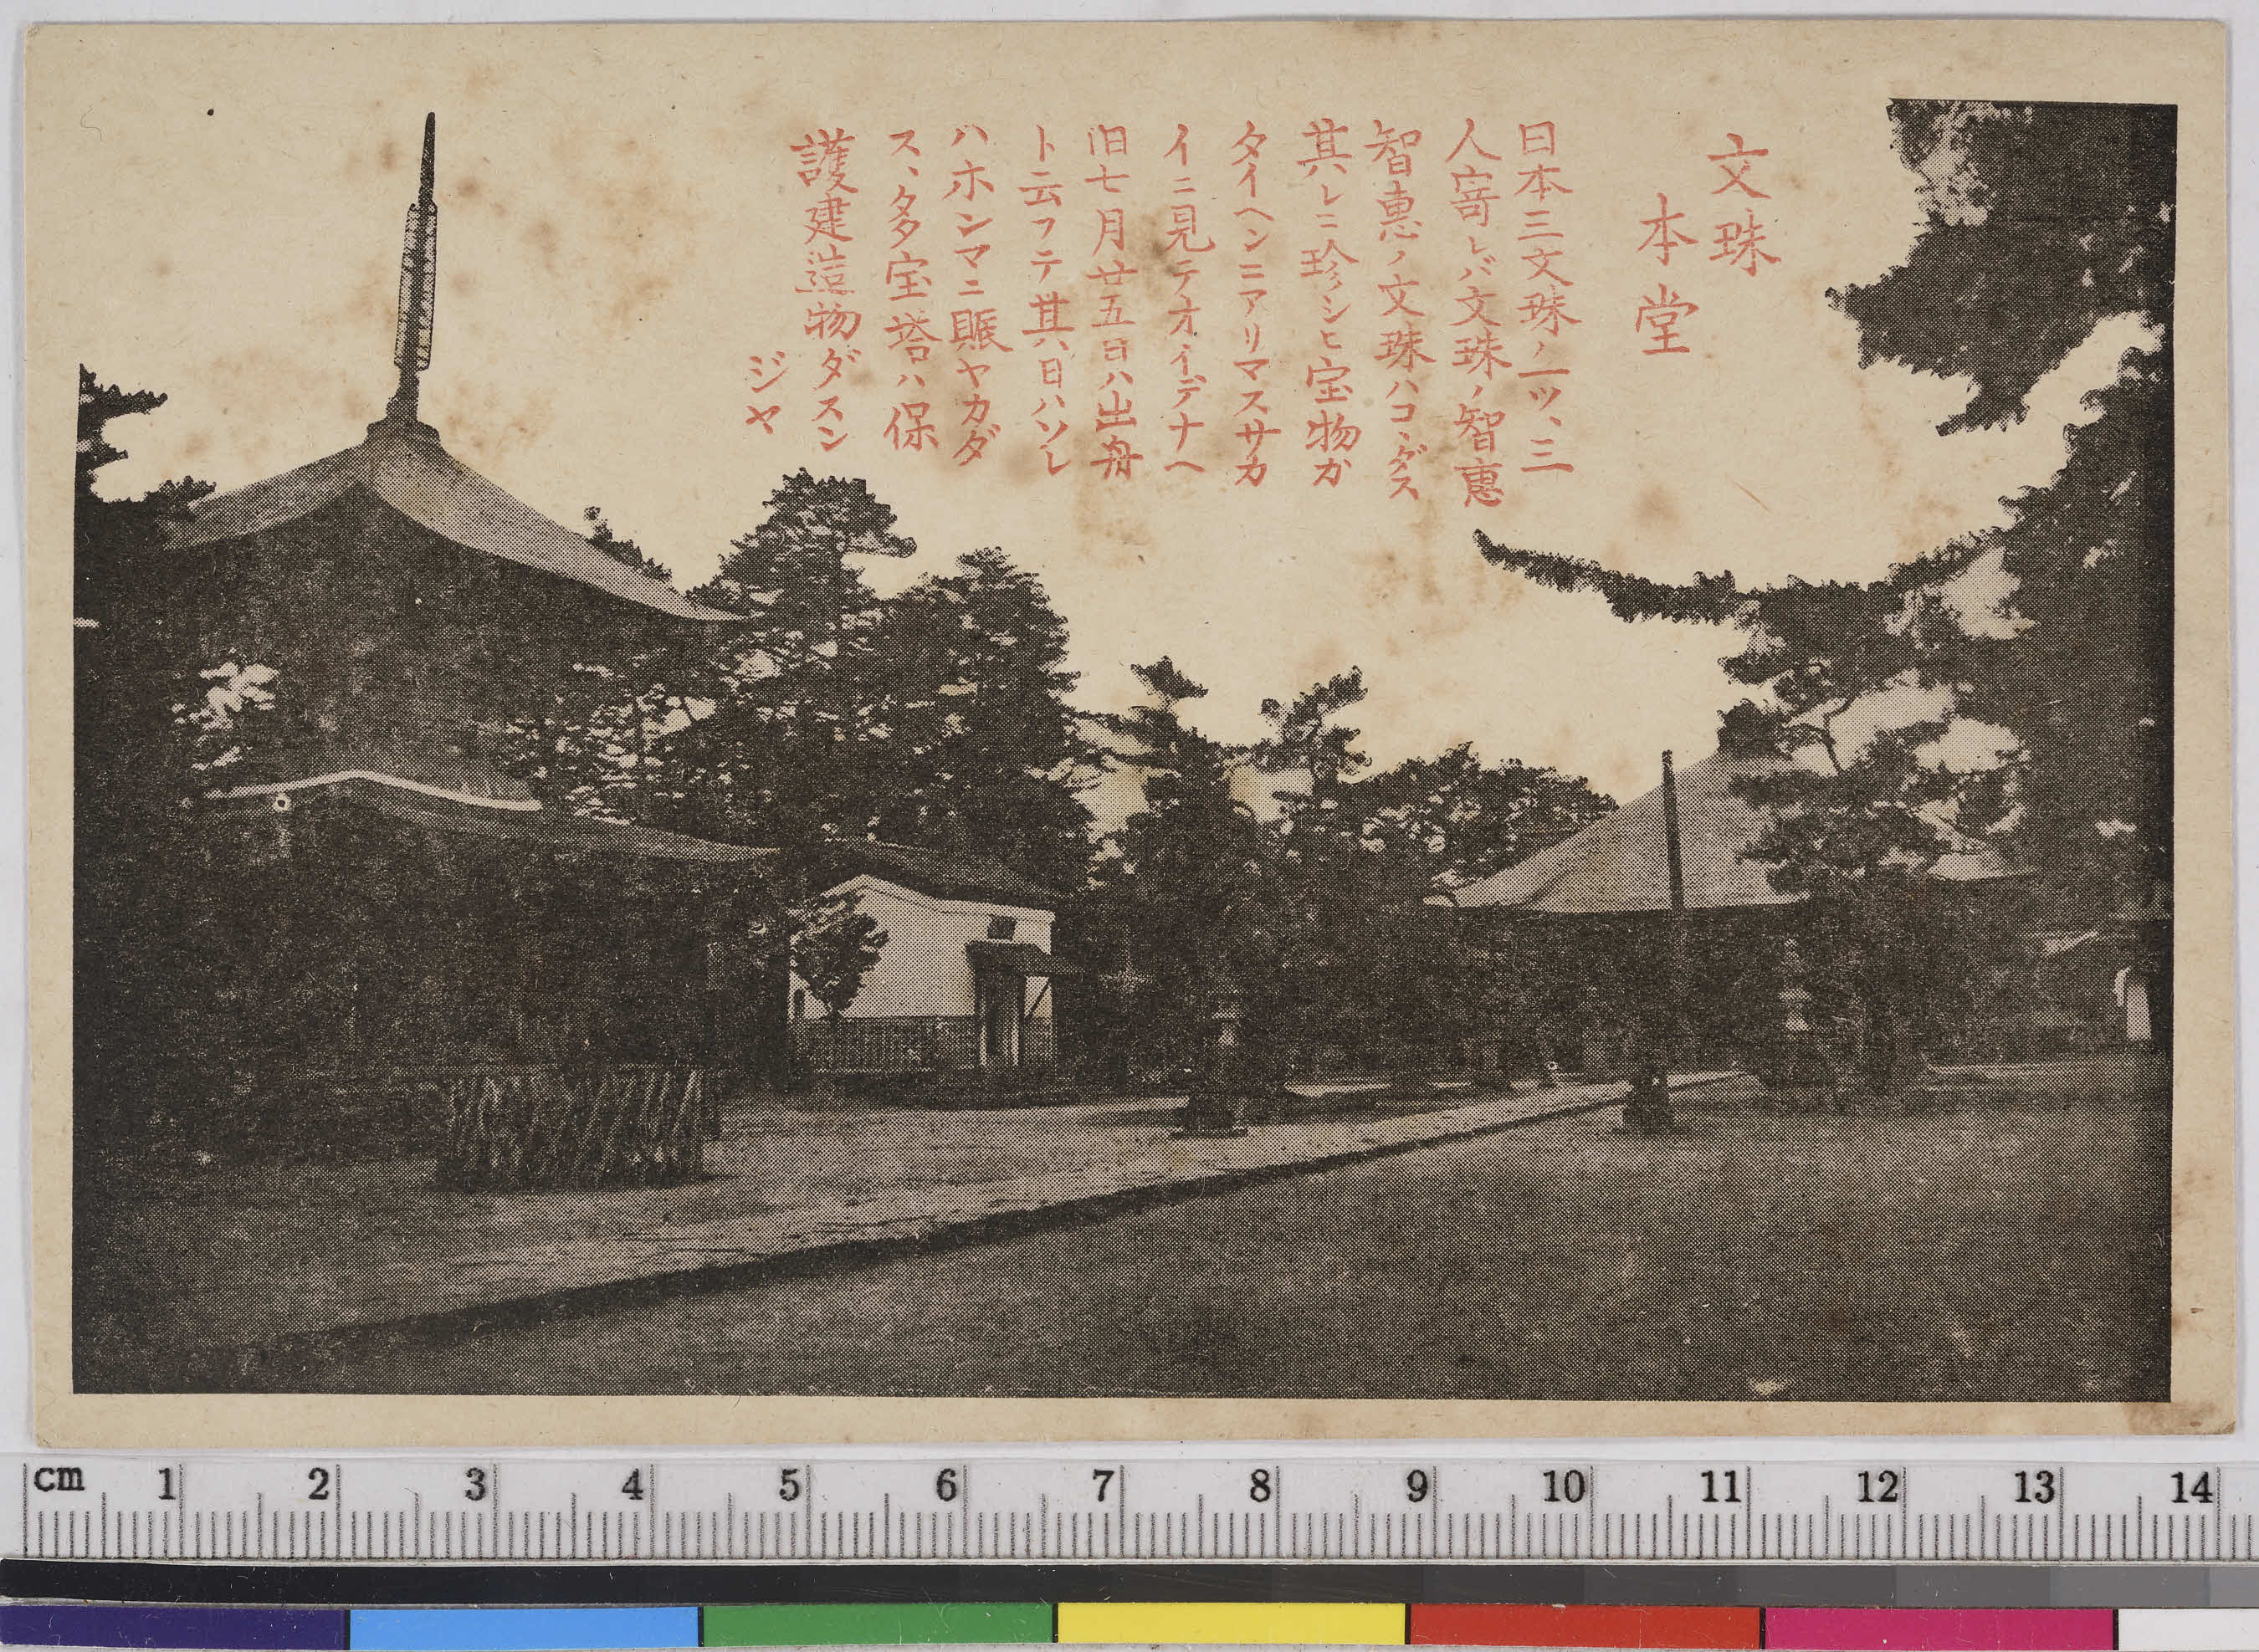 文珠
本堂
日本三文珠ノ一ツ、三
人寄レバ文珠ノ智恵
智恵ノ文珠ハコヽダス
其レニ珍シヒ宝物ガ
タイヘンニアリマスサカ
イニ見テオイデナヘ
旧七月廿五日ハ出舟
ト云フテ其日ハソレ
ハホンマニ賑ヤカダ
ス、多宝塔ハ保
護建造物ダスン
ジヤ
cm 1 2 3 4 5 6 7 8 9 10 11 12 13 14